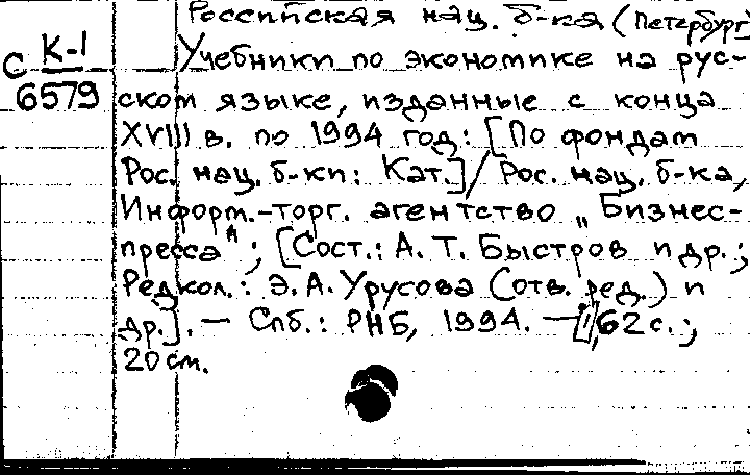 Российская нац. б-ка (Петербург)
С К-1
6579
Учебники по экономике на рус-
ском языке, изданные с конца
XVIII в. по 1994 год: [По фондам
Рос. нац. б-ки: Кат.] / Рос. нац. б-ка,
Информ.-торг. агентство „Бизнес-
пресса"; [Сост.: А. Т. Быстров и др.;
Редкол.: Э. А. Урусова (отв. ред.) и
др.]. — Спб.: РНБ, 1994. — 62 с.;
20 см.